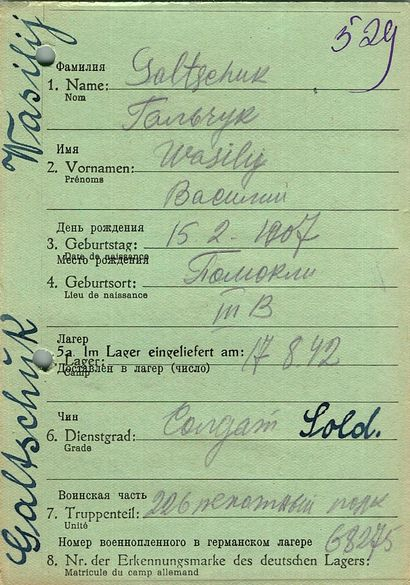 529
Galtschuk Wasilij
Фамилия
1. Name: Galtschuk
Nom
Гальчук
Имя
2. Vornamen: Wasilij
Prénoms
Василий
День рождения
3. Geburtstag: 15 2 - 1907
Date de naissance
Место рождения
4. Geburtsort:
Lieu de naissance
III B
Лагер
5a. Im Lager eingeliefert am: 17 8.42
Lager:
Camp
Доставлен в лагер (число)
Чин
6. Dienstgrad: Солдат Sold.
Grade
Воинская часть
7. Truppenteil: 206 пехотный
Unité
Номер военнопленного в германском лагере 68275
8. Nr. der Erkennungsmarke des deutschen Lagers:
Matricule du camp allemand